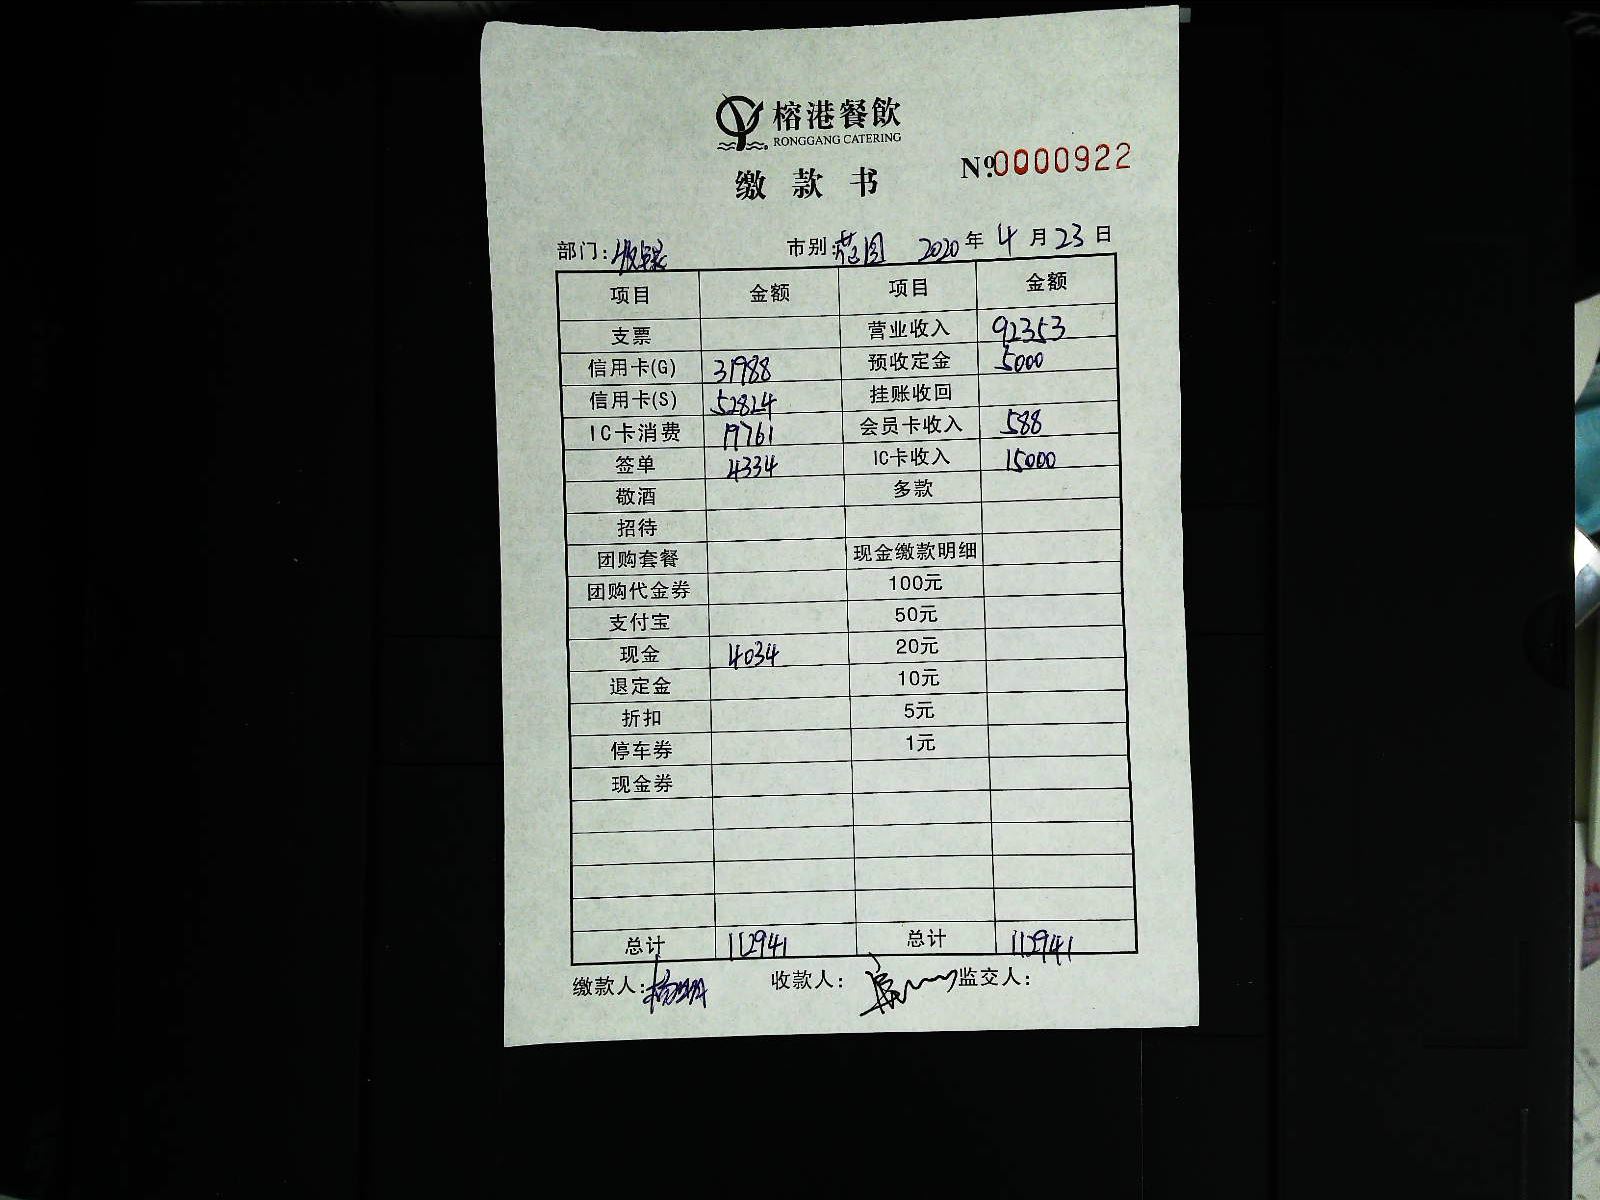 榕港餐飲
RONGGANG CATERING
缴款书
№0000922
部门: 市别: 2020年4月23日
项目 金额 项目 金额
支票 营业收入 92353
信用卡(G) 31988 预收定金 5000
信用卡(S) 52824 挂账收回
IC卡消费 19761 会员卡收入 588
签单 4334 IC卡收入 15000
敬酒 多款
招待
团购套餐 现金缴款明细
团购代金券 100元
支付宝 50元
现金 4034 20元
退定金 10元
折扣 5元
停车券 1元
现金券
总计 112941 总计 112941
缴款人: 收款人: 监交人: